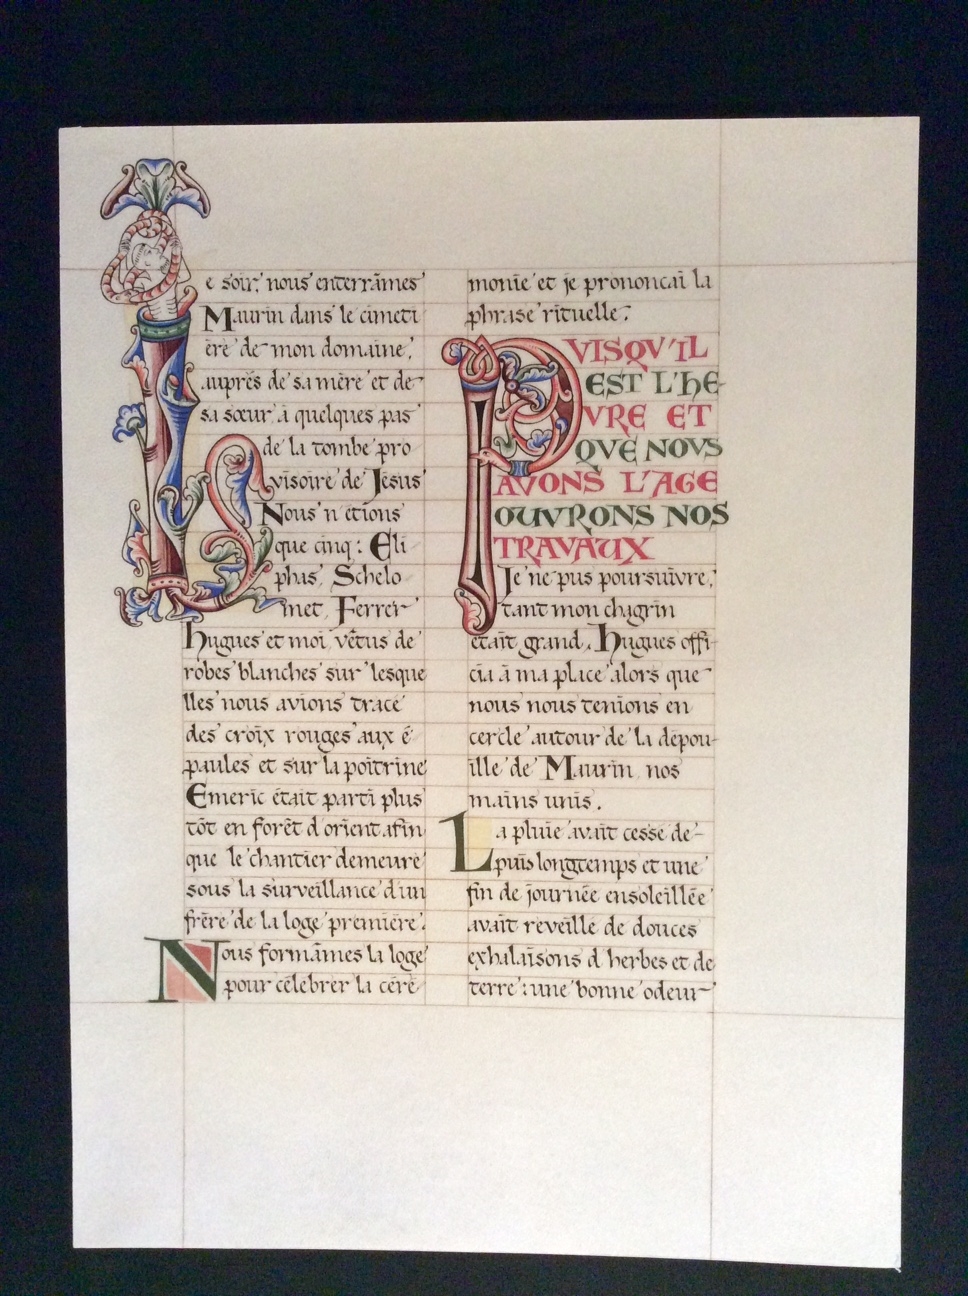 Le soir, nous enterrâmes
Maurin dans le cimeti
ère de mon domaine,
auprès de sa mère et de
sa sœur, à quelques pas
de la tombe pro
visoire de Jésus
Nous n'étions
que cinq : Eli
phas, Schelo
met, Ferrer
Hugues et moi vêtus de
robes blanches sur lesque
lles nous avions tracé
des croix rouges aux é
paules et sur la poitrine
Emeric était parti plus
tôt en forêt d'orient afin
que le chantier demeure
sous la surveillance d'un
frère de la loge première.
Nous formâmes la loge
pour célébrer la céré
monie et je prononçai la
phrase rituelle :
PVISQV'IL
EST L'HE-
VRE ET
QVE NOVS
AVONS L'AGE
OUVRONS NOS
TRAVAUX
Je ne pus poursuivre,
tant mon chagrin
était grand. Hugues offi
cia à ma place alors que
nous nous tenions en
cercle autour de la dépou-
ille de Maurin nos
mains unis.
La pluie avait cessé de-
puis longtemps et une
fin de journée ensoleillée
avait réveillé de douces
exhalaisons d'herbes et de
terre : une bonne odeur